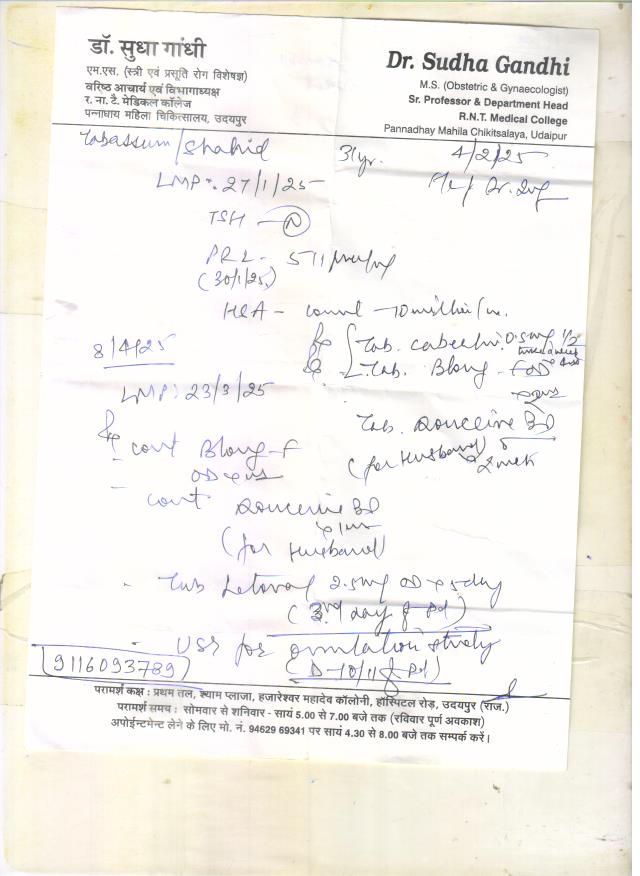 डॉ. सुधा गांधी
एम.एस. (स्त्री एवं प्रसूति रोग विशेषज्ञ)
वरिष्ठ आचार्य एवं विभागाध्यक्ष
र. ना. टै. मेडिकल कॉलेज
पन्नाधाय महिला चिकित्सालय, उदयपुर
Dr. Sudha Gandhi
M.S. (Obstetric & Gynaecologist)
Sr. Professor & Department Head
R.N.T. Medical College
Pannadhay Mahila Chikitsalaya, Udaipur
Tabassum/Shahid 31yr. 4/2/25
LMP: 27/1/25
TSH - N
PRL - 511
(30/1/25)
HSA - count - 70 million/
0.5mg 1/2
Tab. Blong - F OD
8/4/25
LMP: 23/3/25
Tab. BD
(for Husband)
Cont Blong - F
OD
- Cont BD
(for Husband)
- Tab 2.5mg OD x 5day
(3rd day of Pd)
- USG for ovulation study
(D-10/11 of Pd)
9116093789
परामर्श कक्ष : प्रथम तल, श्याम प्लाजा, हजारेश्वर महादेव कॉलोनी, हॉस्पिटल रोड़, उदयपुर (राज.)
परामर्श समय : सोमवार से शनिवार - सायं 5.00 से 7.00 बजे तक (रविवार पूर्ण अवकाश)
अपोईन्टमेन्ट लेने के लिए मो. नं. 94629 69341 पर सायं 4.30 से 8.00 बजे तक सम्पर्क करें।